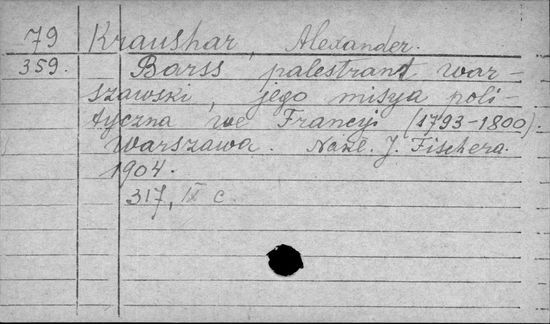 79 Kraushar, Alexander.
359. Barss palestrant war-
szawski, jego misya poli-
tyczna we Francyi (1793-1800).
Warszawa. Nakł. J. Fischera.
1904.
317, IX c.